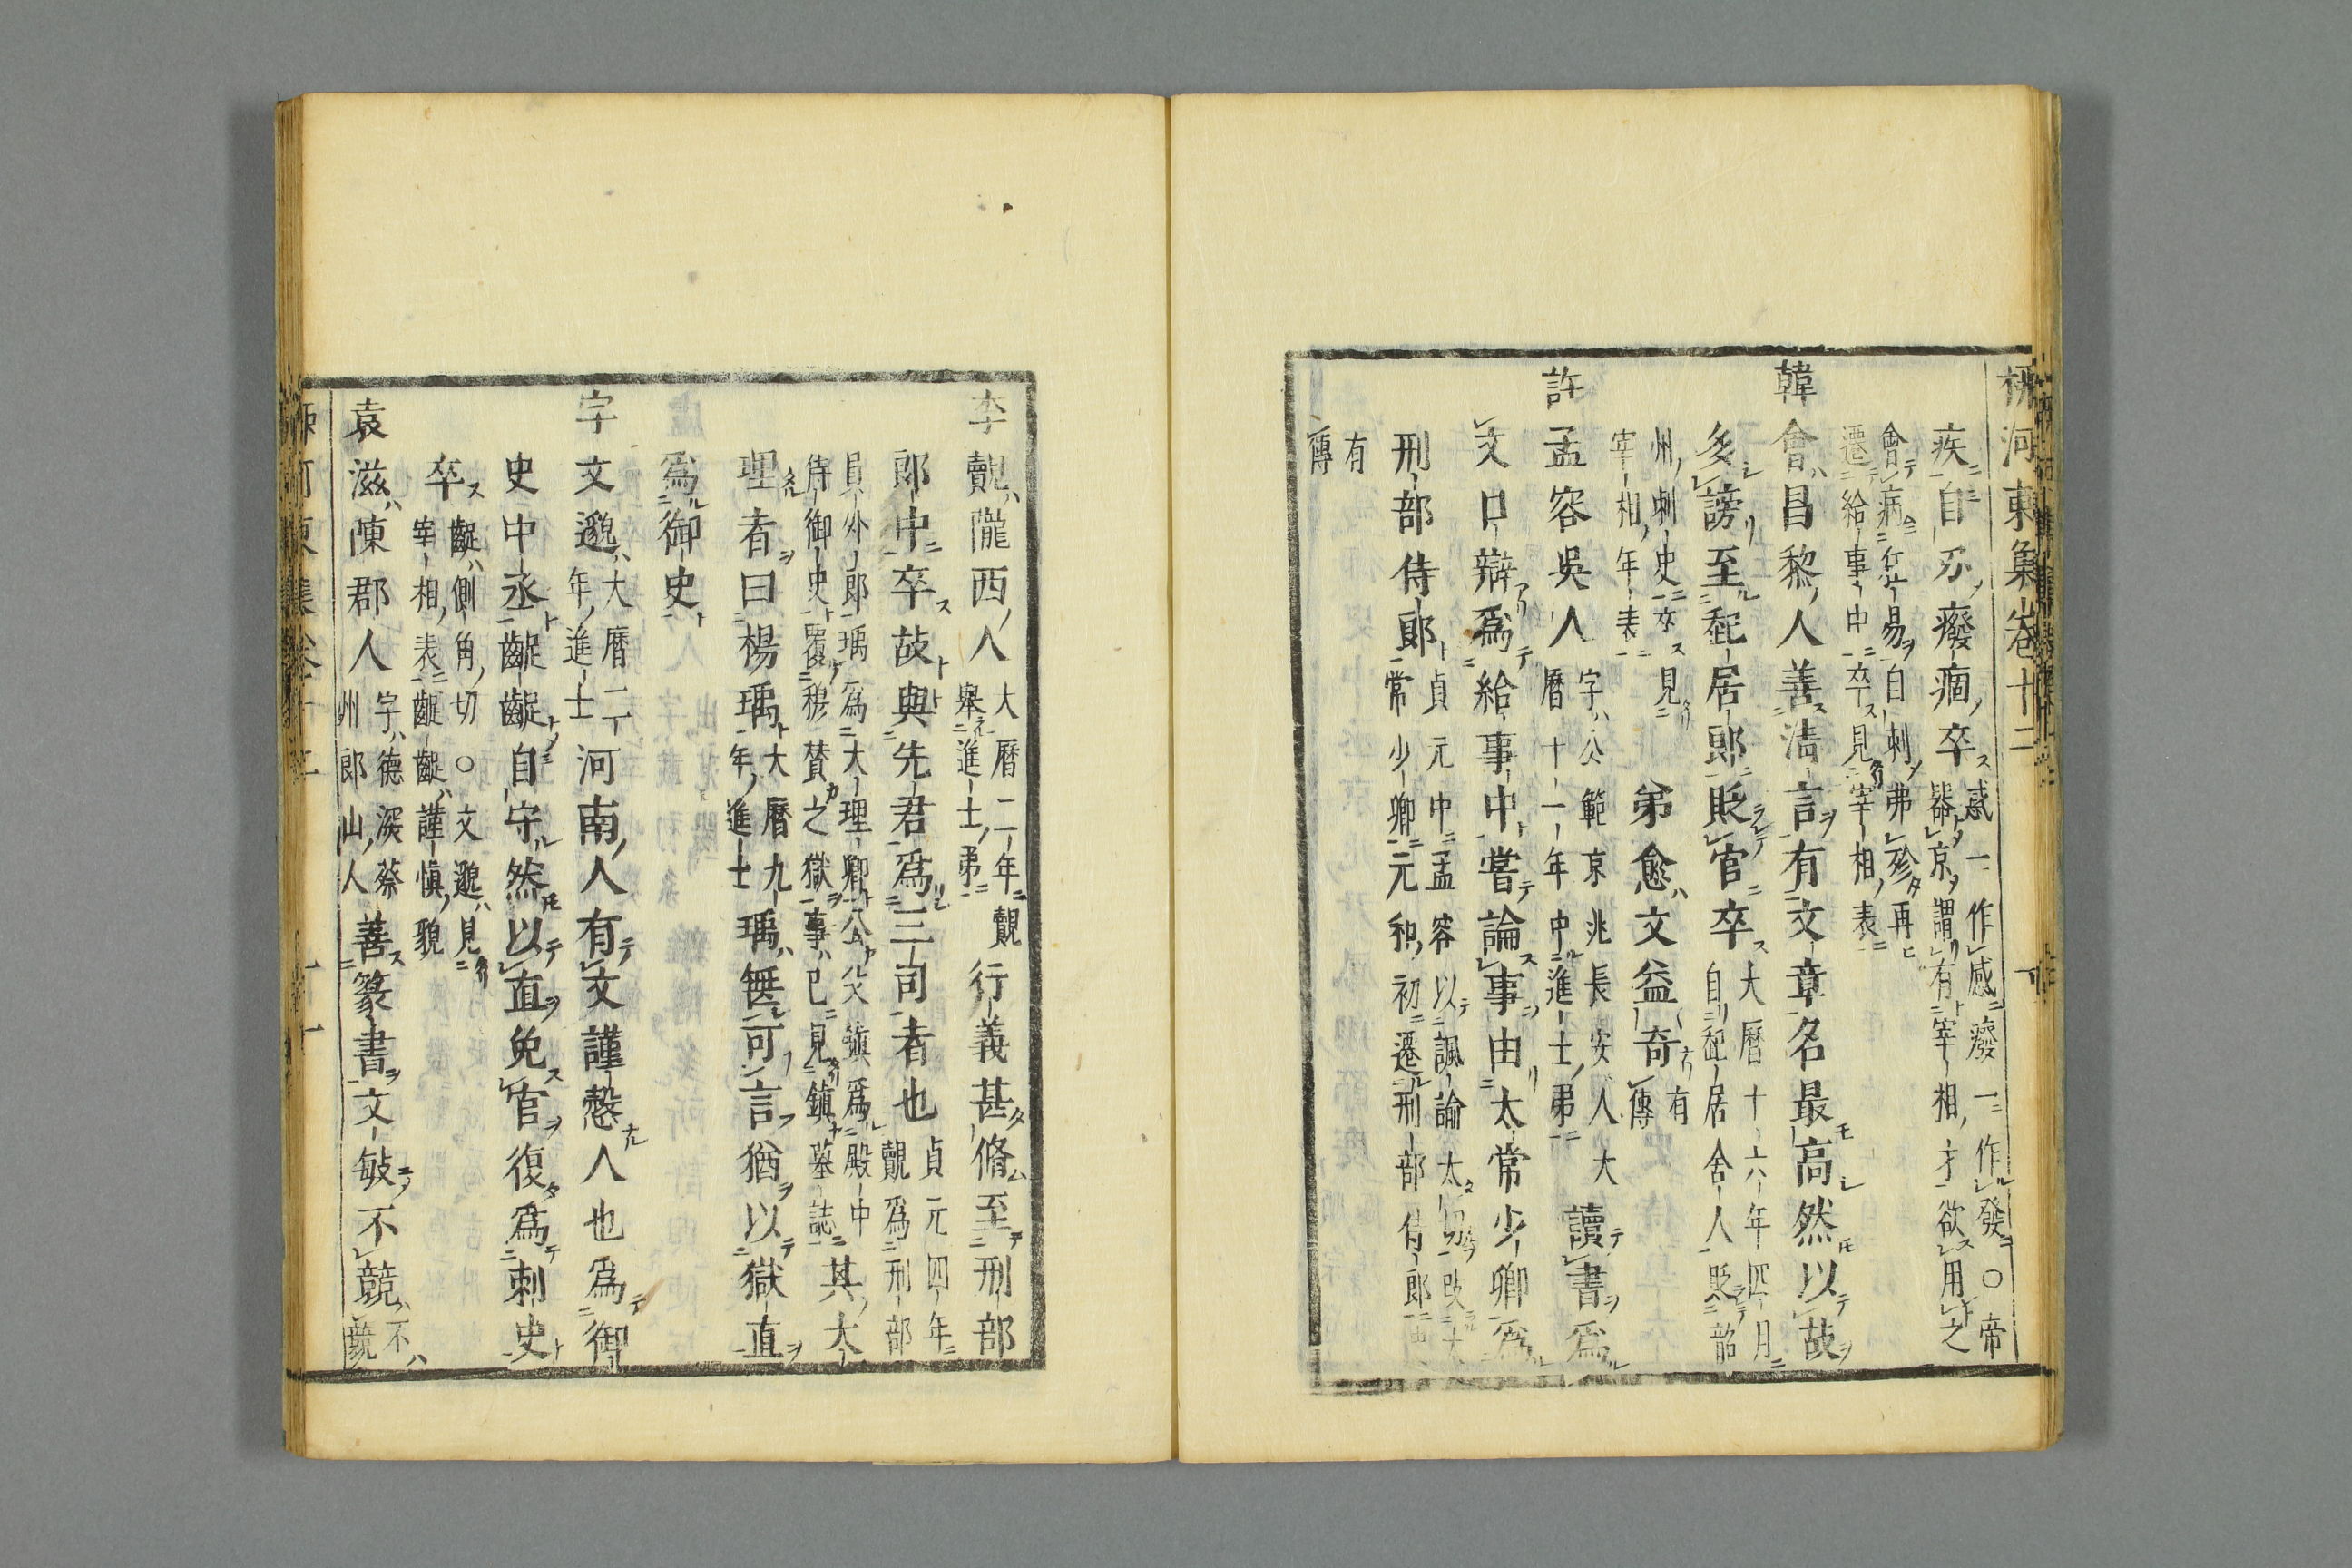 柳河東集卷十二
疾自尔癈痼卒
惑一作感癈一作發○帝
器京謂有宰相才欲用之
會病忿易自刺弗殊再
遷給事中卒見宰相表
韓會昌黎人善清言有文章名最高然以故
多謗至起居郎貶官卒
大曆十六年四月
自起居舍人貶韶
州刺史卒見
宰相年表
弟愈文益奇
有
傳
許孟容吳人
字公範京兆長安人大
曆十一年中進士弟
讀書為
文口辯為給事中嘗論事由太常少卿為
刑部侍郎
貞元中孟容以諷諭太切改太
常少卿元和初遷刑部侍郎
有
傳
李覿隴西人
大曆二年覿
舉進士弟
行義甚脩至刑部
郎中卒故與先君為三司者也
貞元四年
覿為刑部
員外郎瑀為大理卿公父鎮為殿中
侍御史覆穆贊之獄事已見鎮墓誌
其大
理者曰楊瑀
大曆九
年進士
瑀無可言猶以獄直
為御史
宇文邈
大曆二
年進士
河南人有文謹愨人也為御
史中丞齪齪自守然以直免官復為刺史
卒
齪側角切○文邈見
宰相表齪齪謹慎貌
袁滋陳郡人
字德深蔡
州郎山人
善篆書文敏不競
不
競